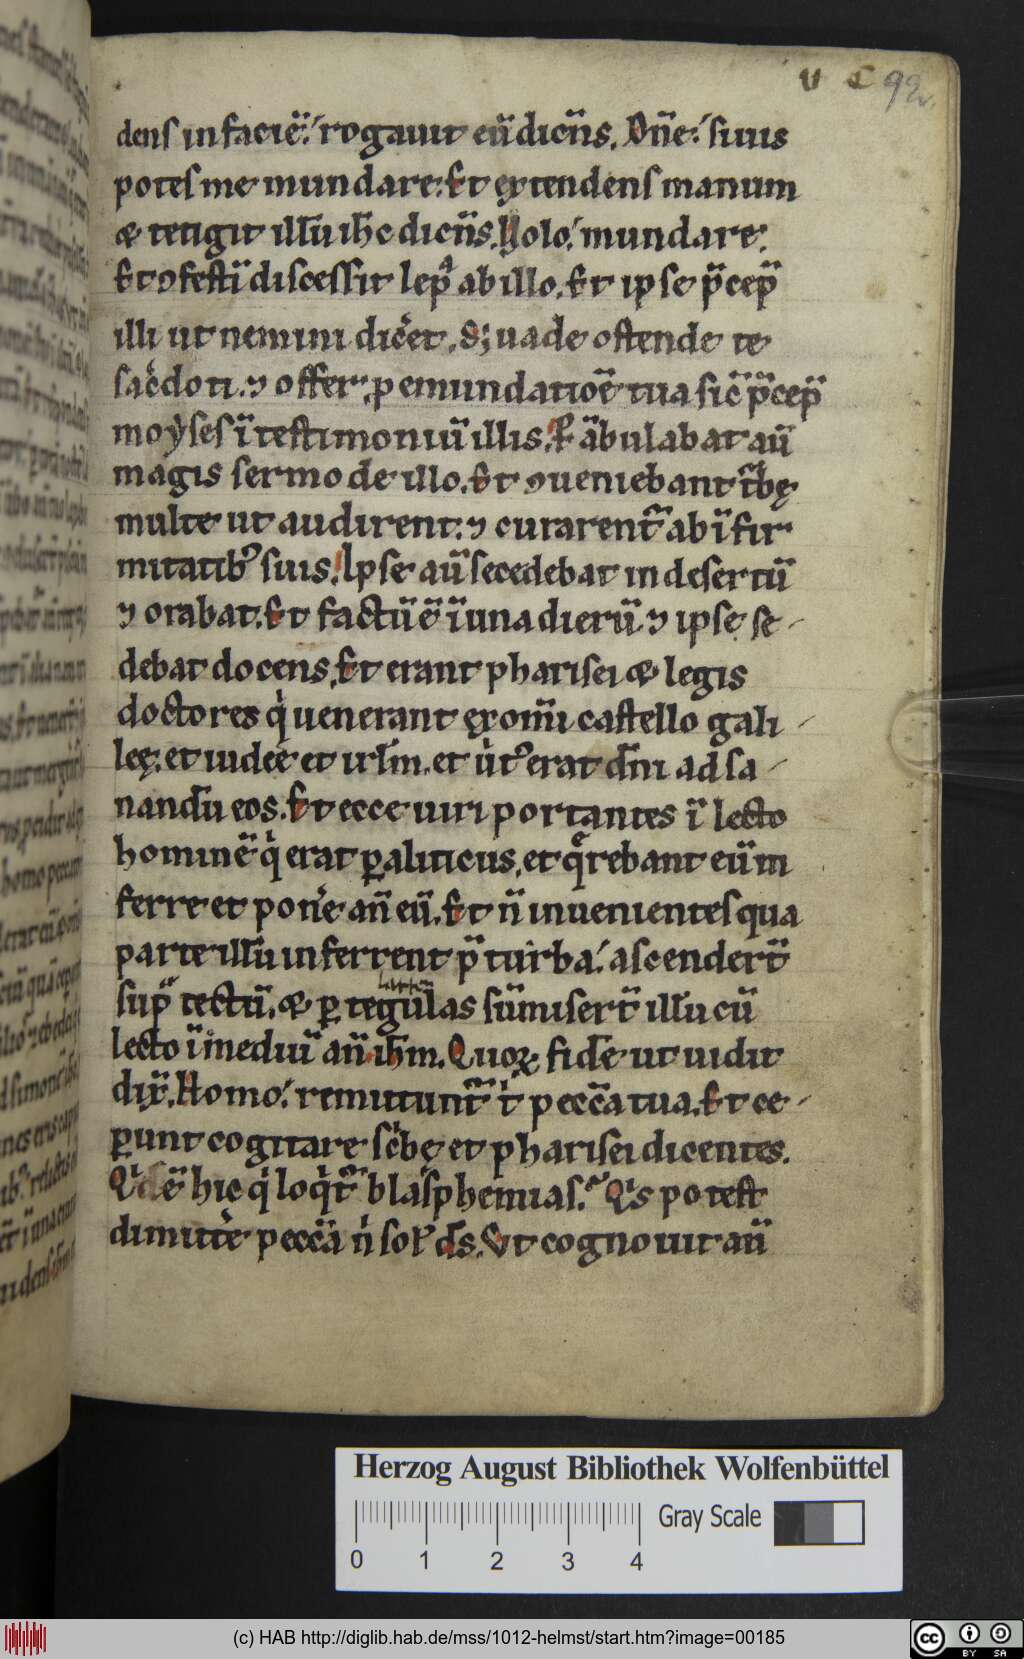 v c 92v.
denſ in facie᷑. rogauit eu᷑ dicn᷑s. Dn᷑e. ſi uis
poteſ me mundare. Et extendenſ manum
& tetigit illu᷑ ih᷑c dicn᷑s. Uolo. mundare.
Et ꝯfeſti᷑ diſceſſit lepᷓ ab illo. Et ipſe p᷑cep᷑
illi ut nemini dic᷑et. S; uade oſtende te
ſac᷑doti. ⁊ offer p emundatio᷑e tua ſic᷑ p᷑cep᷑
moẏſeſ i᷑ teſtimoniu᷑ illis. P᷑ a᷑bulabat au᷑
magis ſermo de illo. Et ꝯueniebant t᷑bę
multe ut audirent. ⁊ curarent᷑ ab i᷑fir
mitatib᷒ ſuis. Ipſe au᷑ ſecedebat in deſertu᷑
⁊ orabat. Et factu᷑ e᷑ i᷑ una dieru᷑ ⁊ ipſe ſe-
debat docens. Et erant phariſei & legis
doctores qͥ uenerant ex om᷑i caſtello gali-
leę. et iudeę et irl᷑m. et uͥt᷒ erat dn᷑i ad ſa-
nandu᷑ eos. Et ecce uiri portantes i᷑ lecto
homine᷑ qͥ erat ꝑaliticus. et q᷑rebant eu᷑ in
ferre et pon᷑e an᷑ eu᷑. Et n᷑ inuenienteſ qua
parte illu᷑ inferrent p᷑ turba. aſcendert᷑
latten
ſup᷑ tectu᷑. & ꝑ tegulas ſu᷑miſert᷑ illu᷑ cu᷑
lecto i᷑ mediu᷑ an᷑ ih᷑m. Quoꝝ fide᷑ ut uidit
dix᷑. Homo. remittunt᷑ tͥ pecc᷑a tua. Et ce-
ꝑunt cogitare ſc᷑bę et phariſei dicentes.
Qͥs e᷑ hic qͥ loqͥt᷑ blaſphemias. Qͥs poteſt
dimitte᷑ pecc᷑a nͥ ſol᷒ d᷑s. Ut cognouit au᷑
Herzog August Bibliothek Wolfenbüttel
Gray Scale
0 1 2 3 4
(c) HAB http://diglib.hab.de/mss/1012-helmst/start.htm?image=00185
cc BY SA